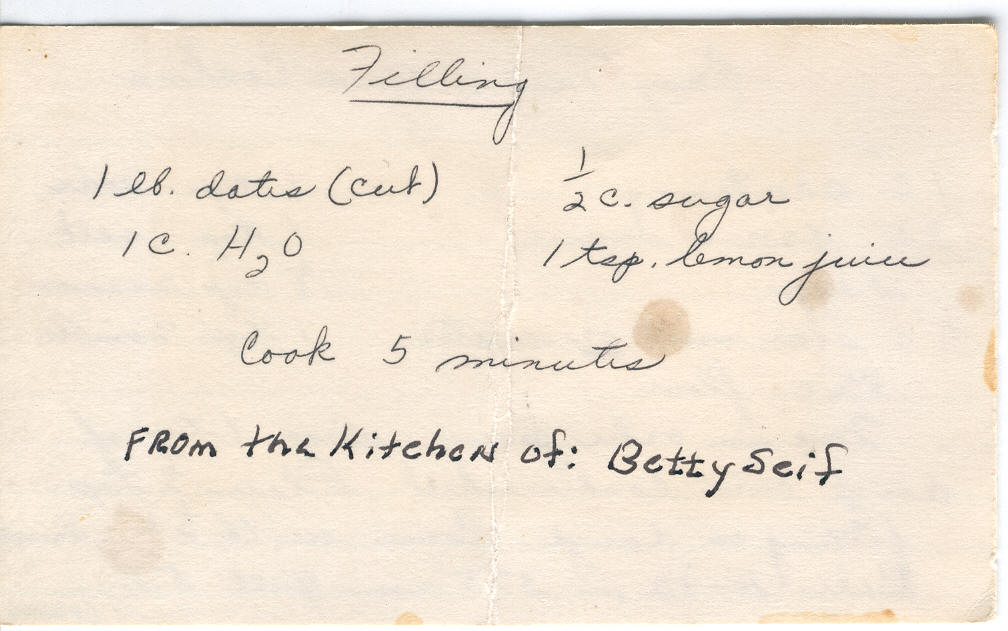 Filling
1 lb. dates (cut)
1 c. H₂O
1/2 c. sugar
1 tsp. lemon juice
Cook 5 minutes
From the Kitchen of: Betty Seif